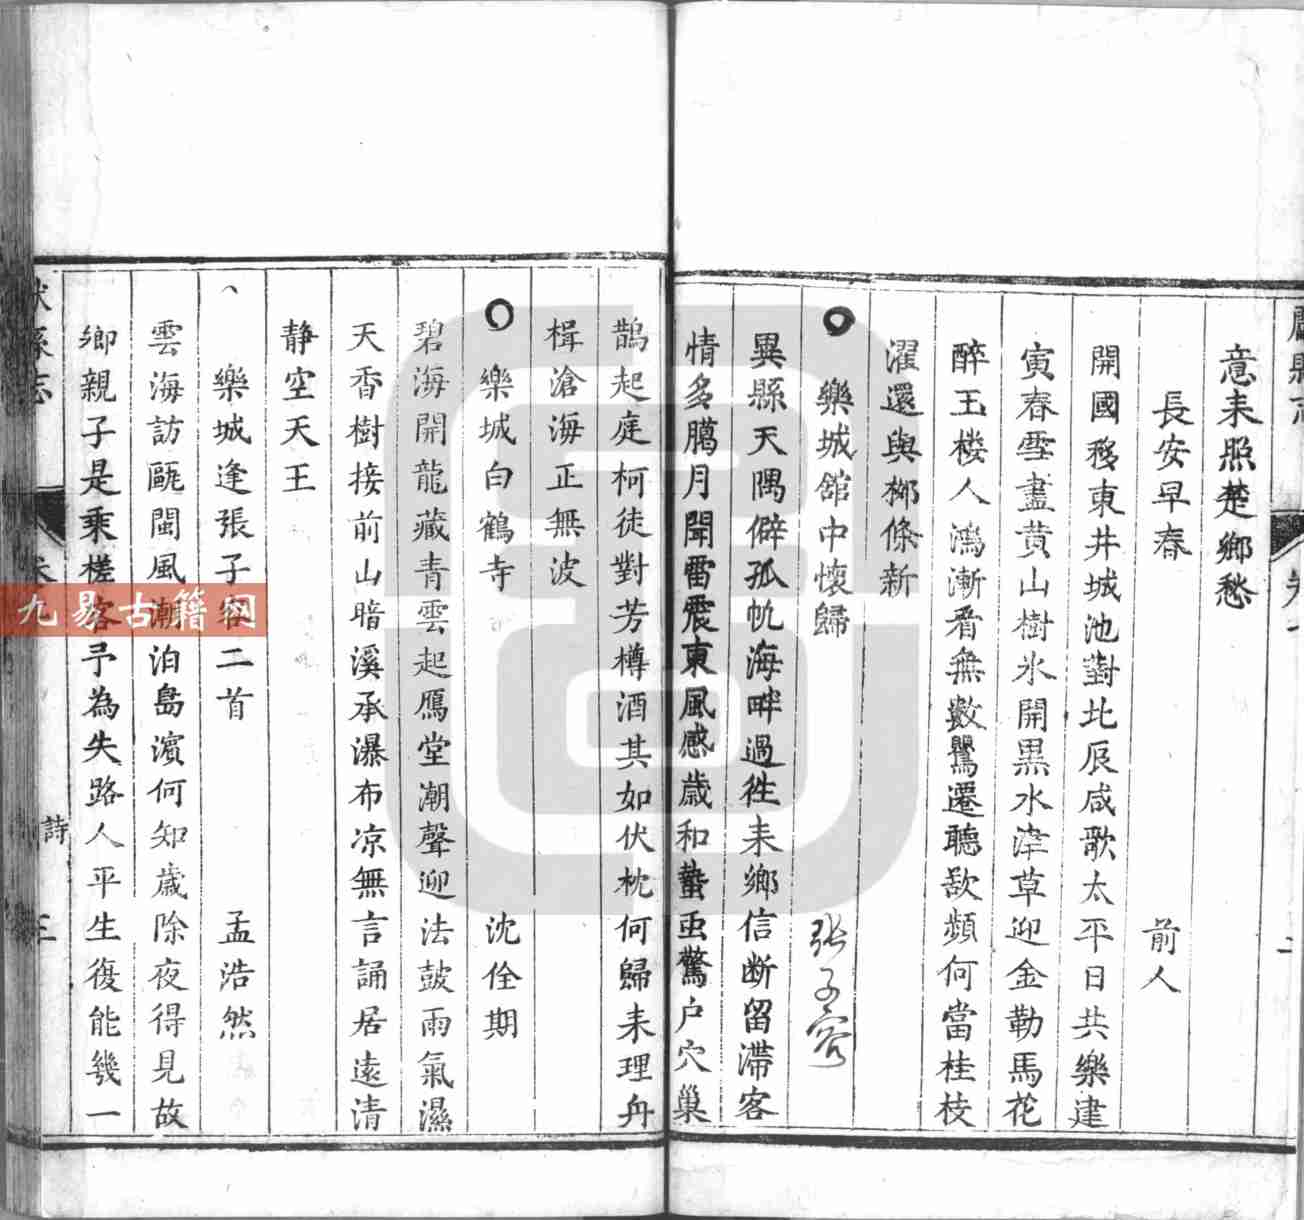 意来照楚鄉愁
長安早春 前人
開國移東井城池對北辰咸歌太平日共樂建
寅春雪盡黄山樹氷開黒水津草迎金勒馬花
醉玉楼人鴻漸看無數鸎遷聽欲頻何當桂枝
濯還與栁條新
樂城舘中懷歸 張子容
異縣天隅僻孤帆海畔過徃来鄉信断留滯客
情多臈月聞雷震東風感歳和蟄虫驚户穴巢
鵲起庭柯徒對芳樽酒其如伏枕何歸来理舟
楫滄海正無波
樂城白鶴寺 沈佺期
碧海開龍藏青雲起鴈堂潮聲迎法鼓雨氣濕
天香樹接前山暗溪承瀑布凉無言誦居遠清
静空天王
樂城逢張子容二首 孟浩然
雲海訪甌閩風潮泊島濱何知歳除夜得見故
鄉親子是乘槎客予為失路人平生復能幾一
縣志
詩 三
九易古籍网